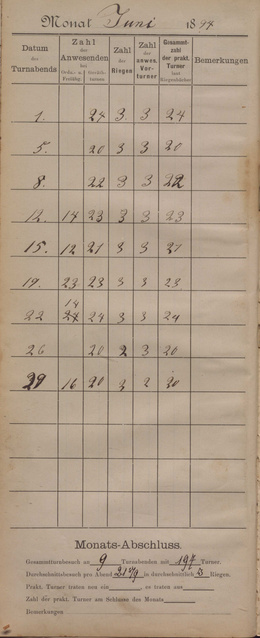 Monat Juni 1897
Datum des Turnabends | Zahl der Anwesenden bei Ordn.- u. Freiübg. | Geräthturnen | Zahl der Riegen | Zahl der anwes. Vorturner | Gesammtzahl der prakt. Turner laut Riegenbücher | Bemerkungen
1. 24 3. 3 24
5. 20 3 3 20
8. 22 3 3 22
12. 14 23 3 3 23
15. 12 21 3 3 21
19. 23 23 3 3 23
22 14 24 3 3 24
26 20 2 3 20
29 16 20 2 2 20
Monats-Abschluss.
Gesammtturnbesuch an 9 Turnabenden mit 197 Turner.
Durchschnittsbesuch pro Abend 21 8/9 in durchschnittlich 3 Riegen.
Prakt. Turner traten neu ein es traten aus
Zahl der prakt. Turner am Schlusse des Monats
Bemerkungen